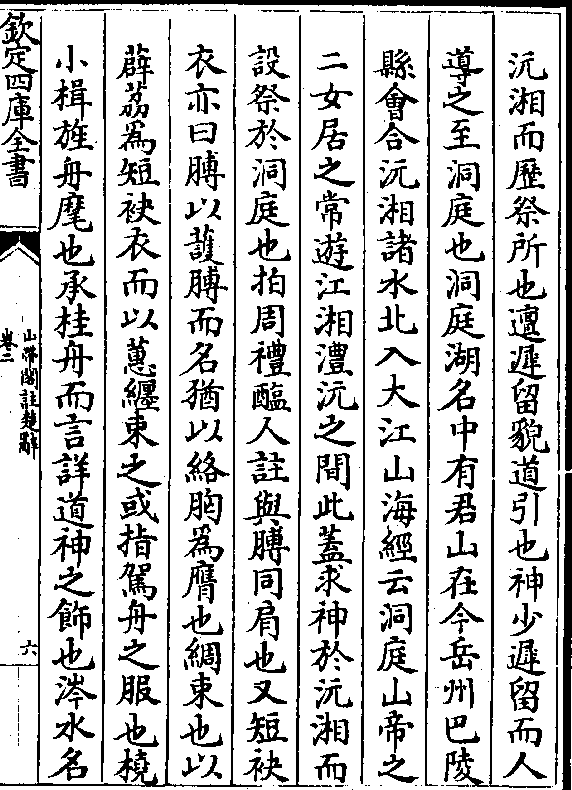 沅湘而歷祭所也邅遲留貌道引也神少遲留而人
導之至洞庭也洞庭湖名中有君山在今岳州巴陵
縣會合沅湘諸水北入大江山海經云洞庭山帝之
二女居之常遊江湘澧沅之間此蓋求神於沅湘而
設祭於洞庭也拍周禮醢人註與膊同肩也又短袂
衣亦曰膊以䕶膊而名猶以絡胸為膺也綢束也以
薜荔為短袂衣而以蕙纏束之或指駕舟之服也橈
小楫旌舟麾也承桂舟而言詳道神之飾也涔水名
欽定四庫全書
山帶閣註楚辭
卷二
六